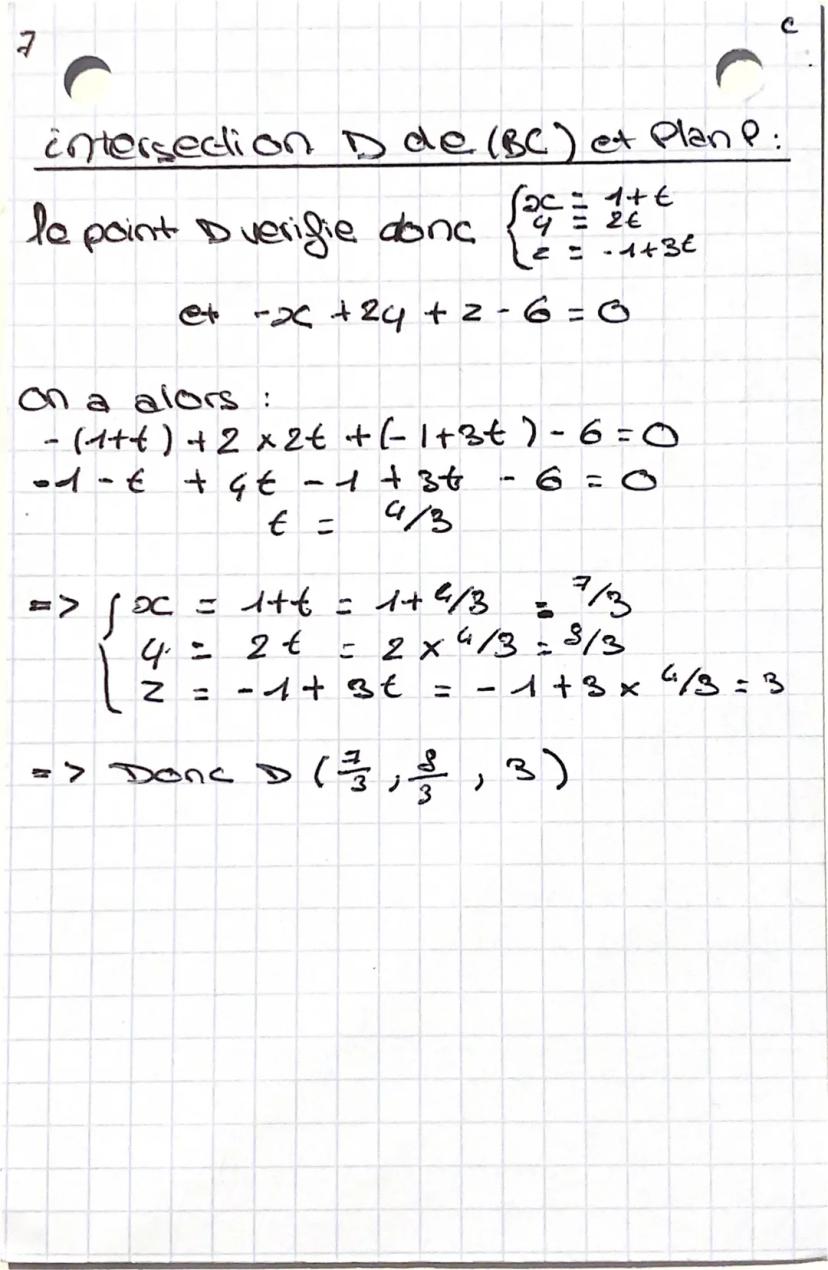 7
c
intersection D de (BC) et Plan P :
le point D verifie donc { x = 1+t
y = 2t
z = -1+3t
et -x + 2y + z - 6 = 0
on a alors :
- (1+t) + 2 × 2t + (- 1+3t) - 6 = 0
-1 - t + 4t - 1 + 3t - 6 = 0
t = 4/3
=> { x = 1+t = 1+4/3 = 7/3
y = 2t = 2 × 4/3 = 8/3
z = -1 + 3t = -1 + 3 × 4/3 = 3
=> Donc D (7/3, 8/3, 3)